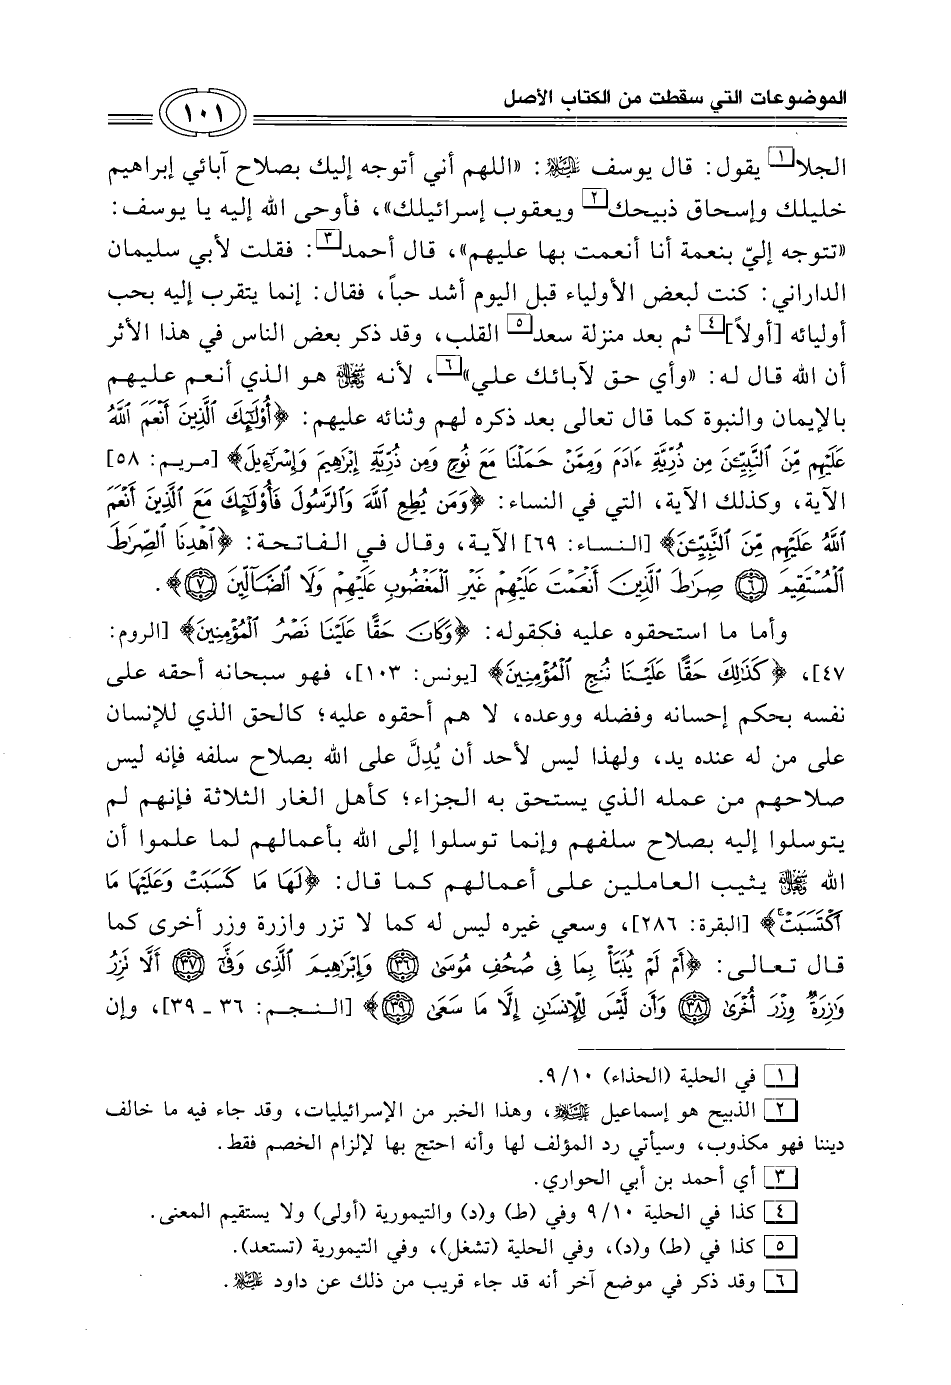 الموضوعات التي سقطت من الكتاب الأصل
١٠١
الجلا[١] يقول: قال يوسف ﵇: «اللهم أني أتوجه إليك بصلاح آبائي إبراهيم
خليلك وإسحاق ذبيحك[٢] ويعقوب إسرائيلك»، فأوحى الله إليه يا يوسف:
«تتوجه إليّ بنعمة أنا أنعمت بها عليهم»، قال أحمد[٣]: فقلت لأبي سليمان
الداراني: كنت لبعض الأولياء قبل اليوم أشد حباً، فقال: إنما يتقرب إليه بحب
أوليائه [أولاً][٤] ثم بعد منزلة سعد[٥] القلب، وقد ذكر بعض الناس في هذا الأثر
أن الله قال له: «وأي حق لآبائك علي»[٦]، لأنه ﷻ هو الذي أنعم عليهم
بالإيمان والنبوة كما قال تعالى بعد ذكره لهم وثنائه عليهم: ﴿أُوْلَٰٓئِكَ ٱلَّذِينَ أَنْعَمَ ٱللَّهُ
عَلَيْهِم مِّنَ ٱلنَّبِيِّـۧنَ مِن ذُرِّيَّةِ ءَادَمَ وَمِمَّنْ حَمَلْنَا مَعَ نُوحٍ وَمِن ذُرِّيَّةِ إِبْرَٰهِيمَ وَإِسْرَٰٓءِيلَ﴾ [مريم: ٥٨]
الآية، وكذلك الآية، التي في النساء: ﴿وَمَن يُطِعِ ٱللَّهَ وَٱلرَّسُولَ فَأُوْلَٰٓئِكَ مَعَ ٱلَّذِينَ أَنْعَمَ
ٱللَّهُ عَلَيْهِم مِّنَ ٱلنَّبِيِّـۧنَ﴾ [النساء: ٦٩] الآية، وقال في الفاتحة: ﴿ٱهْدِنَا ٱلصِّرَٰطَ
ٱلْمُسْتَقِيمَ ۝٦ صِرَٰطَ ٱلَّذِينَ أَنْعَمْتَ عَلَيْهِمْ غَيْرِ ٱلْمَغْضُوبِ عَلَيْهِمْ وَلَا ٱلضَّآلِّينَ ۝٧﴾.
وأما ما استحقوه عليه فكقوله: ﴿وَكَانَ حَقًّا عَلَيْنَا نَصْرُ ٱلْمُؤْمِنِينَ﴾ [الروم:
٤٧]، ﴿كَذَٰلِكَ حَقًّا عَلَيْنَا نُنجِ ٱلْمُؤْمِنِينَ﴾ [يونس: ١٠٣]، فهو سبحانه أحقه على
نفسه بحكم إحسانه وفضله ووعده، لا هم أحقوه عليه؛ كالحق الذي للإنسان
على من له عنده يد، ولهذا ليس لأحد أن يُدِلَّ على الله بصلاح سلفه فإنه ليس
صلاحهم من عمله الذي يستحق به الجزاء؛ كأهل الغار الثلاثة فإنهم لم
يتوسلوا إليه بصلاح سلفهم وإنما توسلوا إلى الله بأعمالهم لما علموا أن
الله ﷾ يثيب العاملين على أعمالهم كما قال: ﴿لَهَا مَا كَسَبَتْ وَعَلَيْهَا مَا
ٱكْتَسَبَتْ﴾ [البقرة: ٢٨٦]، وسعي غيره ليس له كما لا تزر وازرة وزر أخرى كما
قال تعالى: ﴿أَمْ لَمْ يُنَبَّأْ بِمَا فِى صُحُفِ مُوسَىٰ ۝٣٦ وَإِبْرَٰهِيمَ ٱلَّذِى وَفَّىٰٓ ۝٣٧ أَلَّا تَزِرُ
وَازِرَةٌ وِزْرَ أُخْرَىٰ ۝٣٨ وَأَن لَّيْسَ لِلْإِنسَٰنِ إِلَّا مَا سَعَىٰ ۝٣٩﴾ [النجم: ٣٦ ـ ٣٩]، وإن
[١] في الحلية (الحذاء) ٩/١٠.
[٢] الذبيح هو إسماعيل ﵇، وهذا الخبر من الإسرائيليات، وقد جاء فيه ما خالف
ديننا فهو مكذوب، وسيأتي رد المؤلف لها وأنه احتج بها لإلزام الخصم فقط.
[٣] أي أحمد بن أبي الحواري.
[٤] كذا في الحلية ٩/١٠ وفي (ط) و(د) والتيمورية (أولى) ولا يستقيم المعنى.
[٥] كذا في (ط) و(د)، وفي الحلية (تشغل)، وفي التيمورية (تستعد).
[٦] وقد ذكر في موضع آخر أنه قد جاء قريب من ذلك عن داود ﵇.